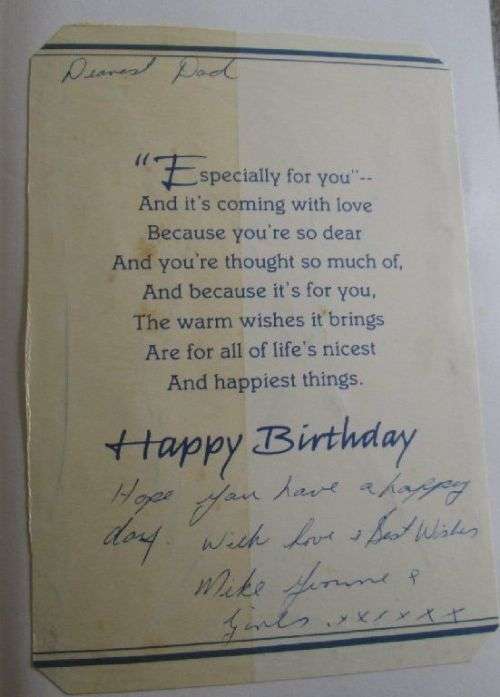 Dearest Dad
"Especially for you"--
And it's coming with love
Because you're so dear
And you're thought so much of,
And because it's for you,
The warm wishes it brings
Are for all of life's nicest
And happiest things.
Happy Birthday
Hope you have a happy
day. With love & Best Wishes
Mike Yvonne &
Girls .xxxxxx